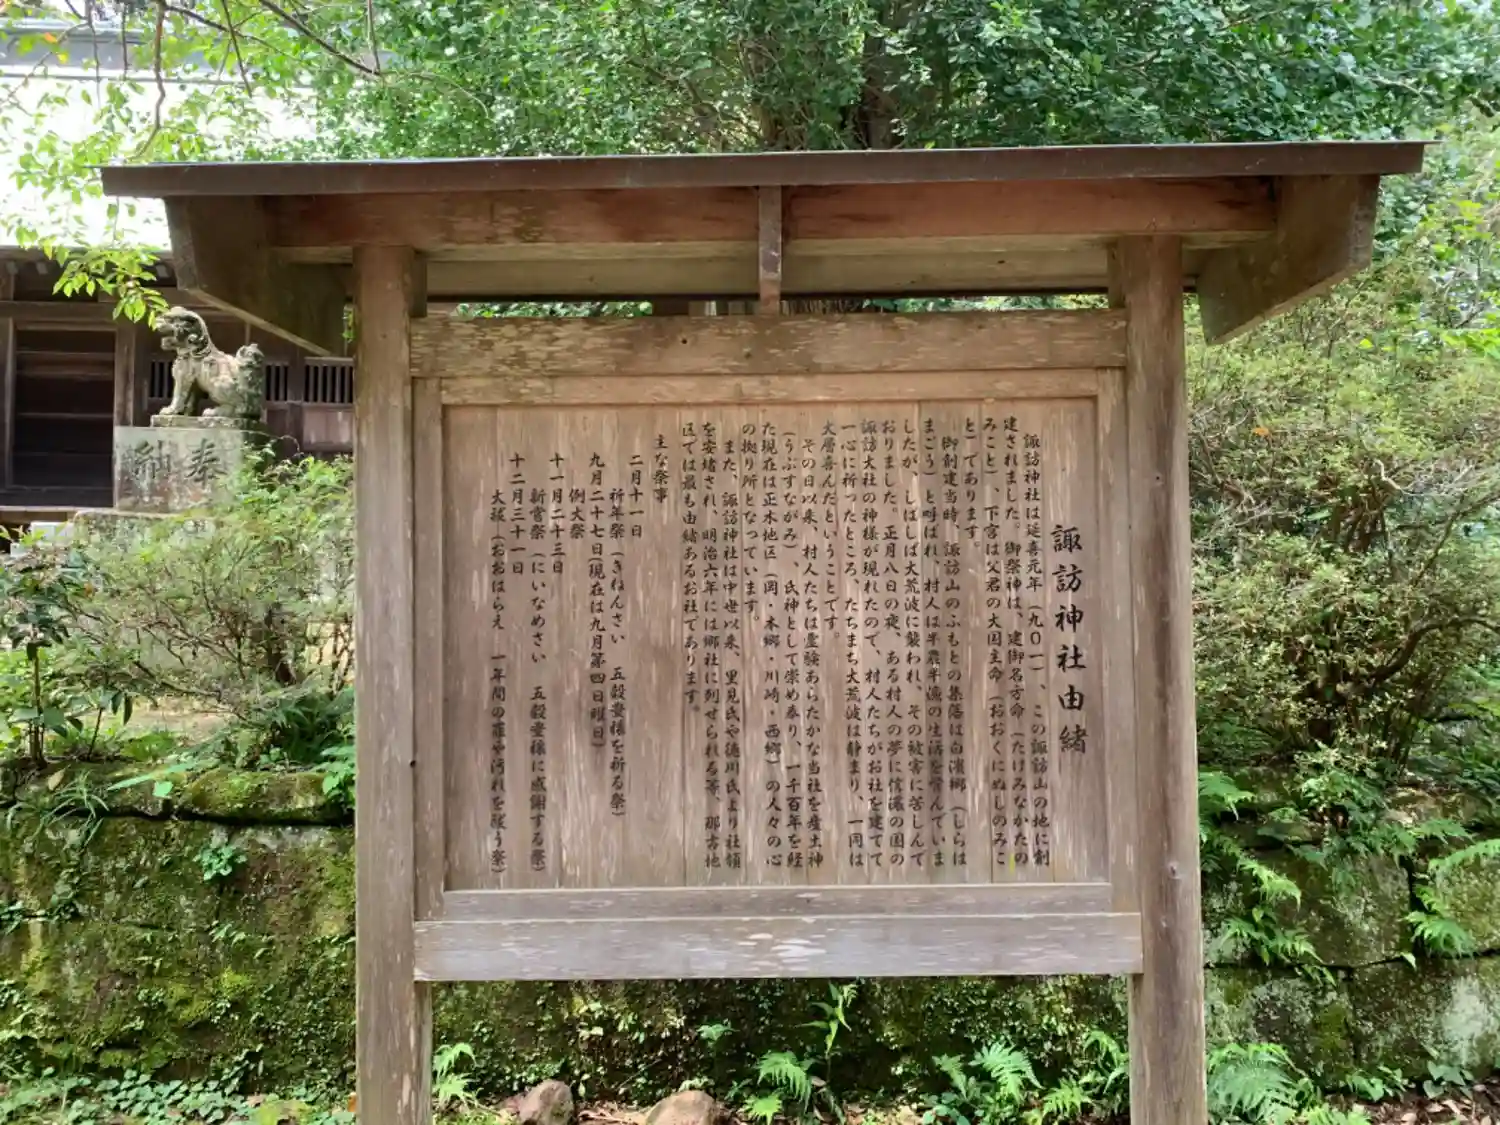 諏訪神社由緒
諏訪神社は延喜元年（九〇一）、この諏訪山の地に創
建されました。御祭神は、建御名方命（たけみなかたの
みこと）、下宮は父君の大国主命（おおくにぬしのみこ
と）であります。
御創建当時、諏訪山のふもとの集落は白濱郷（しらは
まごう）と呼ばれ、村人は半農半漁の生活を営んでいま
したが、しばしば大荒波に襲われ、その被害に苦しんで
おりました。正月八日の夜、ある村人の夢に信濃の国の
諏訪大社の神様が現れたので、村人たちがお社を建てて
一心に祈ったところ、たちまち大荒波は静まり、一同は
大層喜んだということです。
その日以来、村人たちは霊験あらたかな当社を産土神
（うぶすながみ）、氏神として崇め奉り、一千百年を経
た現在は正木地区（岡・本郷・川崎・西郷）の人々の心
の拠り所となっています。
また、諏訪神社は中世以来、里見氏や徳川氏より社領
を安堵され、明治六年には郷社に列せられる等、那古地
区では最も由緒あるお社であります。
主な祭事
二月十一日
祈年祭（きねんさい　五穀豊穣を祈る祭）
九月二十七日(現在は九月第四日曜日)
例大祭
十一月二十三日
新嘗祭（にいなめさい　五穀豊穣に感謝する祭）
十二月三十一日
大祓（おおはらえ　一年間の罪や汚れを祓う祭）
奉
献